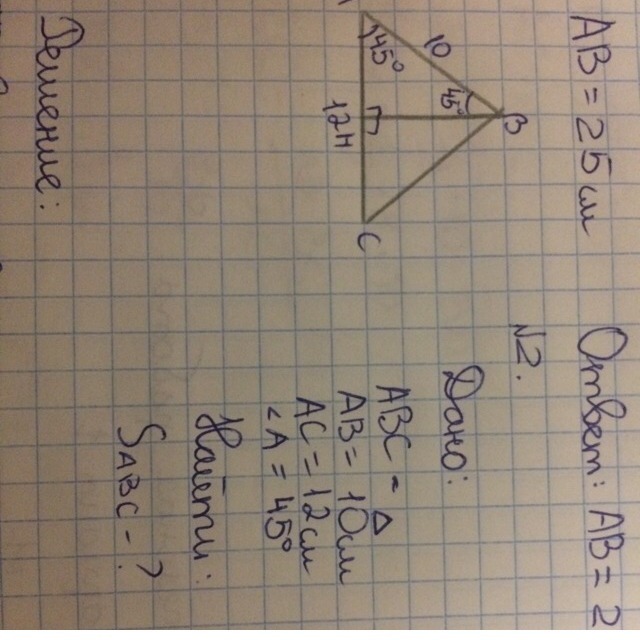 AB = 25 см
Ответ: AB = 2
№2.
Дано:
ABC - △
AB = 10 см
AC = 12 см
∠A = 45°
Найти:
SABC - ?
45°
10
45°
B
12
H
C
Решение: